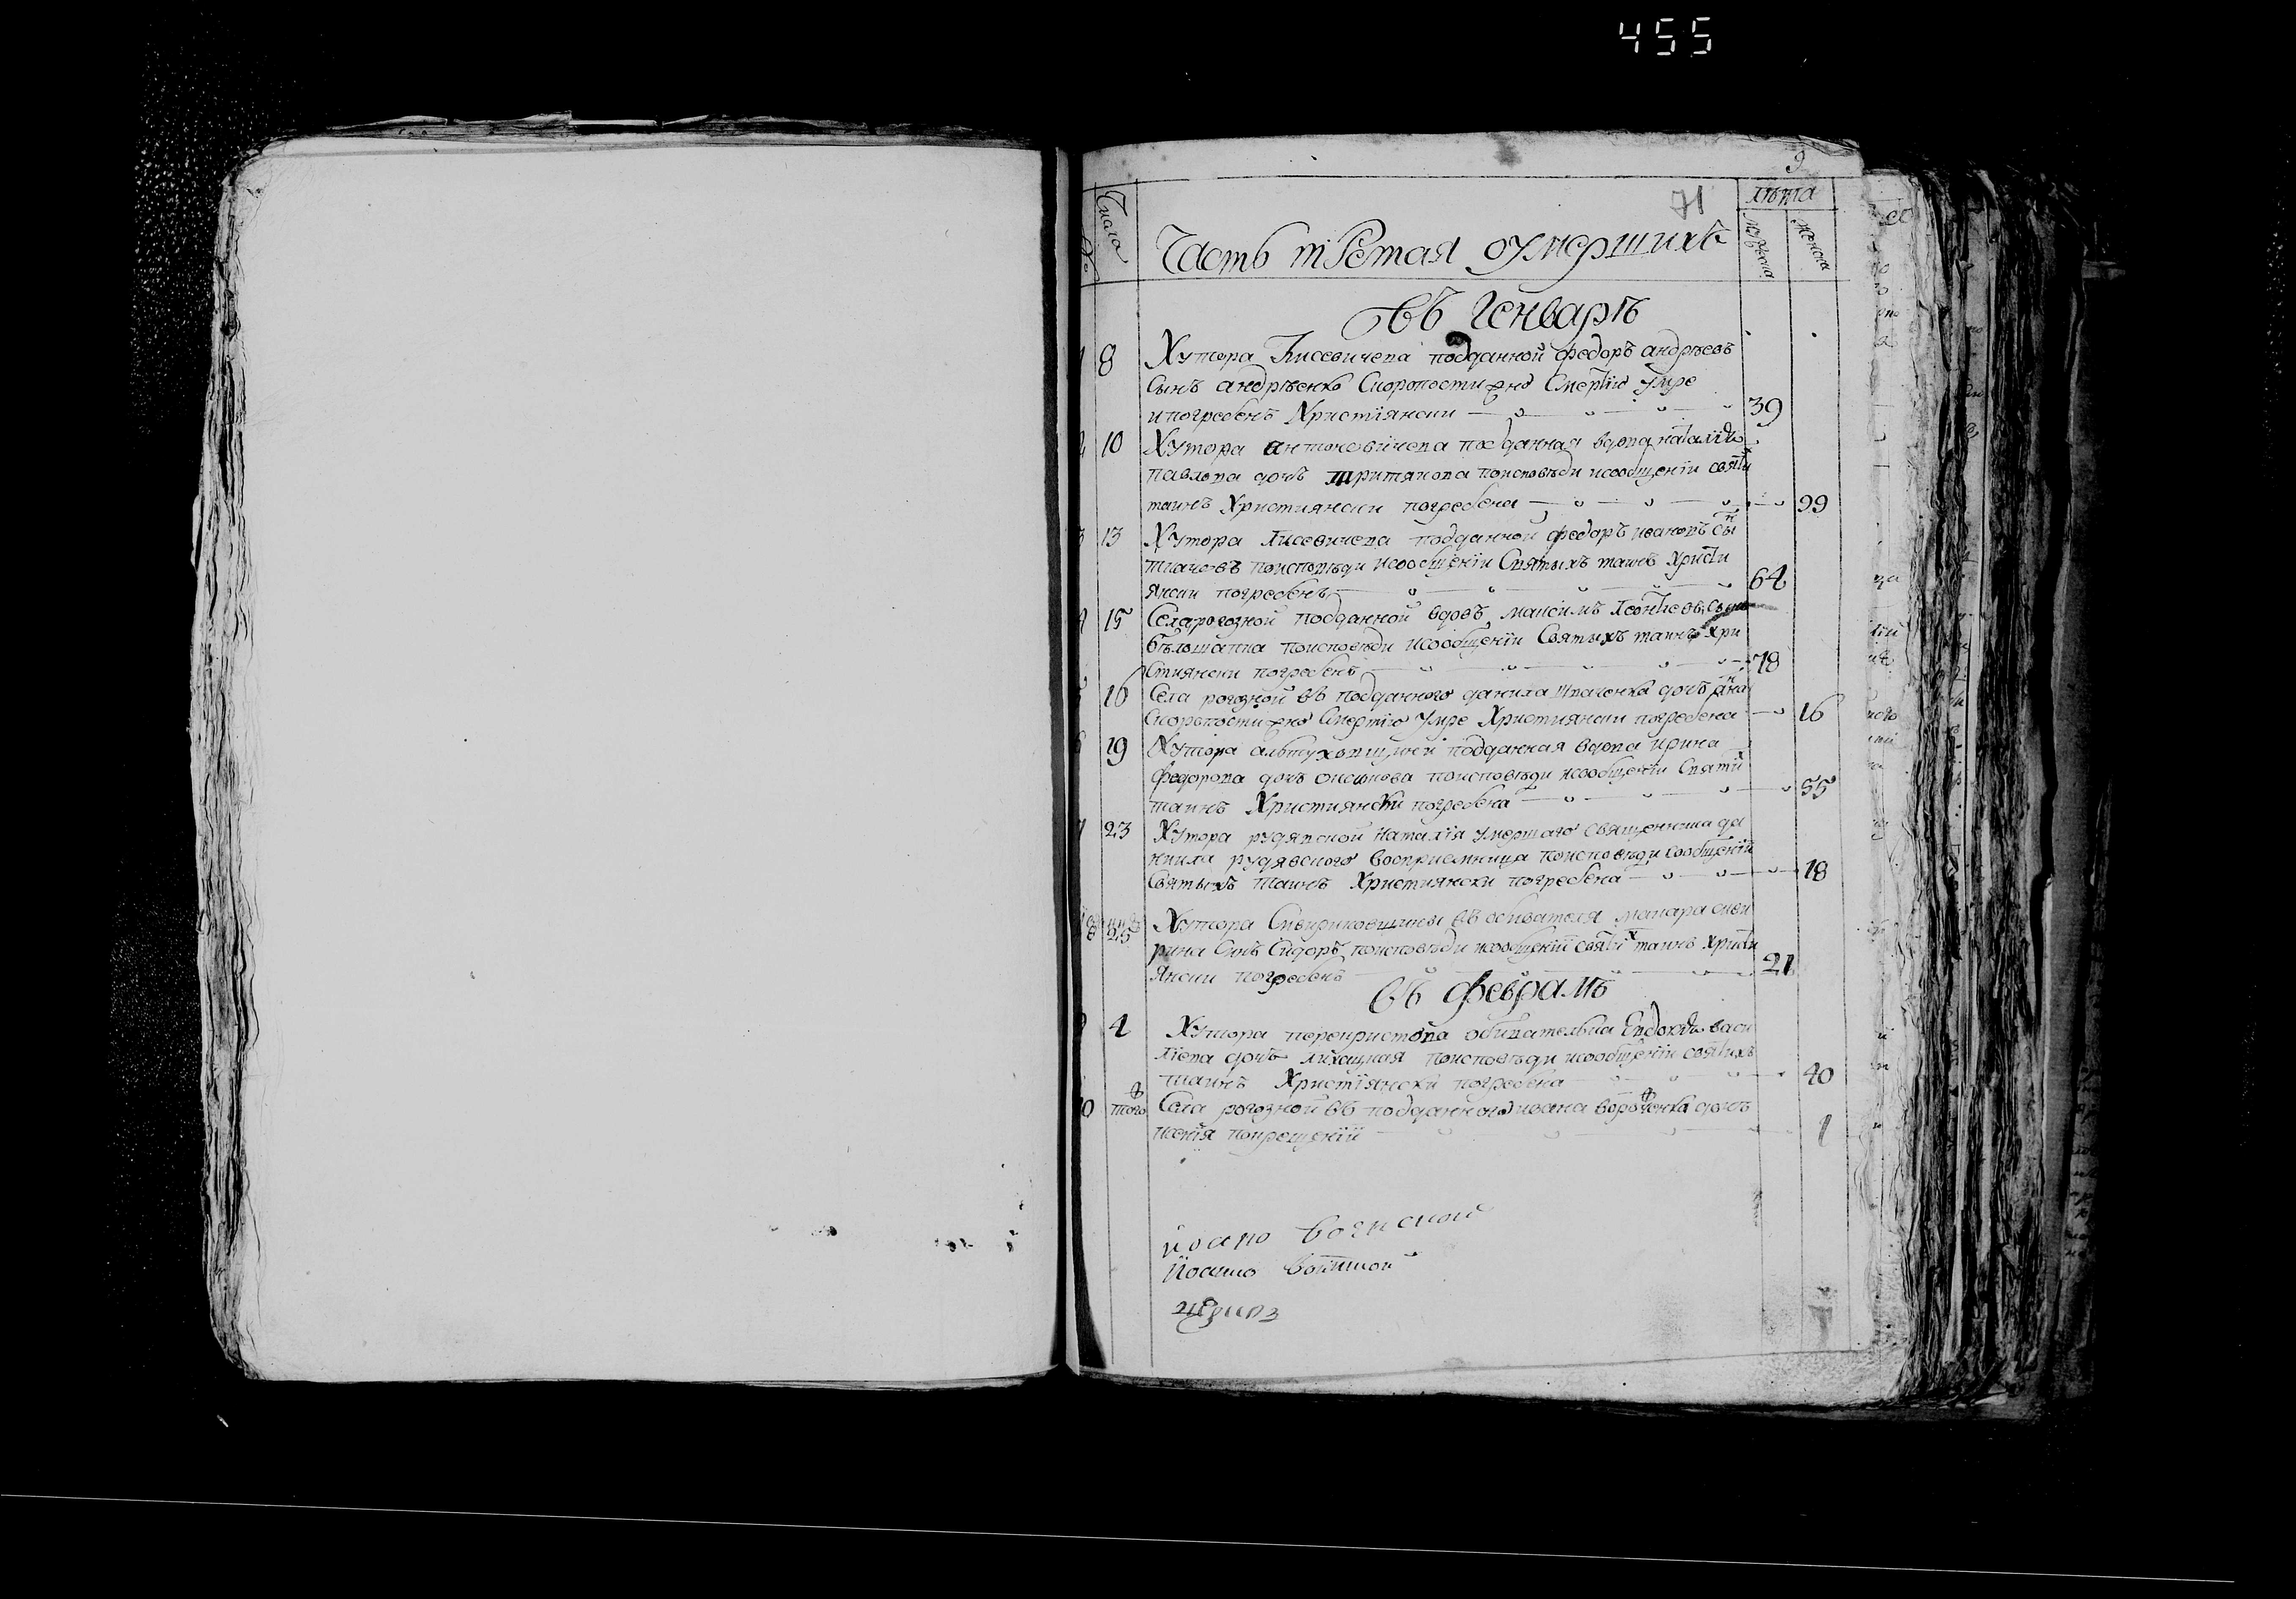 455
9
71
Числа
лѣта
мужеска
женска
Часть третая оумершихъ
въ Генварѣ
1 8 Хутора Лисевичева подданной федоръ андрѣевъ
сынъ андрѣенко Скоропостижно Смертію умре
и погребенъ Христіянски 39
2 10 Хутора антоновичева подданная вдова наталія
павлова дочъ притянова поисповѣди исообщеніи святи
таинъ Християнски погребена 99
3 13 Хутора Лисевичева подданной федоръ ивановъ сын
ткаченъ поисповѣди исообщеніи Святыхъ таинъ Христи
янски погребенъ 64
4 15 Села рогозной подданной вдовъ максимъ Леонтіевъ сынъ
поисповѣди исообщеніи Святыхъ таинъ хри
стиянски погребенъ 78
5 16 Села рогозной въ подданного данила дочъ анна
Скоропостижно Смертію умре Християнски погребена 16
6 19 Хутора альтуховщини подданная вдова ирина
федорова дочъ поисповѣди исообщеніи Святи
таинъ Християнски погребена 55
7 23 Хутора рудявской Наталія умершаго священника да
ниила рудявского восприемница поисповѣди сообщеніи
Святыхъ таинъ Християнски погребена 18
8 25 Хутора Сивириновщины въ обивателя макара сиви
рина Синъ Сидоръ поисповѣди исообщеніи святих таинъ христи
янски погребенъ 21
въ февралѣ
4 Хутора перехристова обивателька Евдокія васи
лиева дочъ поисповѣди исообщеніи святихъ
таинъ Християнски погребена 40
10 того Села рогозной въ подданного ивана дочъ
покрещеніи 1